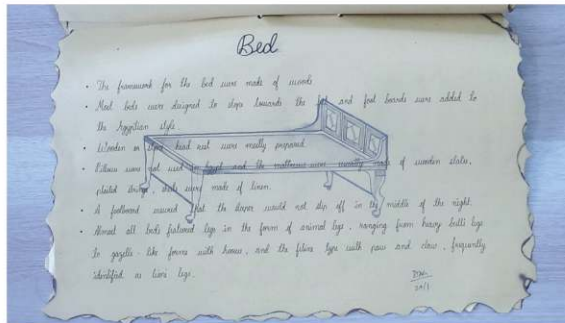 Bed
• The framework for the bed were made of woods
• Most beds were designed to slope towards the foot and foot boards were added to
the Egyptian style.
• Wooden or head rest were mostly prepared.
• Pillows were not used in and the mattresses were usually made of wooden slats,
plaited were made of linen.
• A footboard ensured that the sleeper would not slip off in the middle of the night.
• Almost all beds featured legs in the form of animal legs, ranging from heavy bull's legs
to gazelle-like forms with hooves, and the feline type with paw and claw, frequently
identified as lions legs.